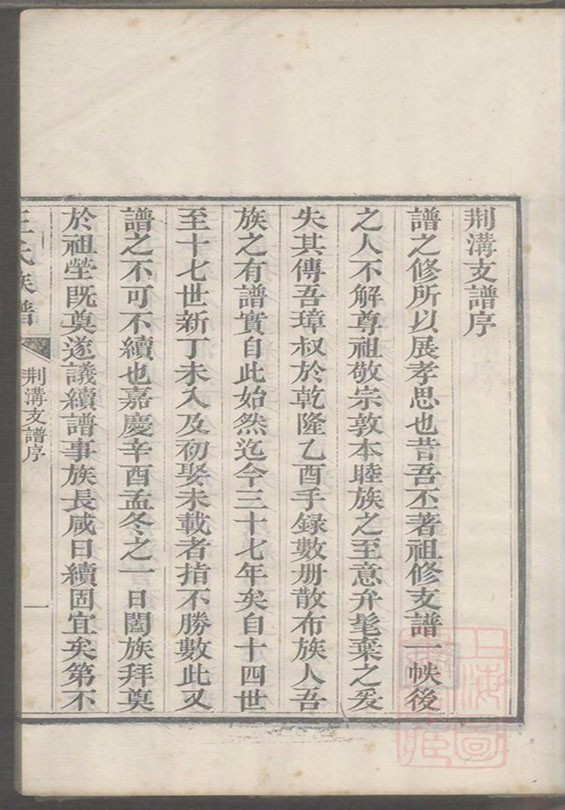 荆溝支譜序
譜之修所以展孝思也昔吾丕著祖修支譜一帙後
之人不解尊祖敬宗敦本睦族之至意弁髦棄之爰
失其傳吾璋叔於乾隆乙酉手録數册散布族人吾
族之有譜實自此始然迄今三十七年矣自十四世
至十七世新丁未入及初娶未載者指不勝數此又
譜之不可不續也嘉慶辛酉孟冬之一日闔族拜奠
於祖塋既奠遂議續譜事族長咸曰續固宜矣第不
王氏族譜
荆溝支譜序
一
上海圖
藏